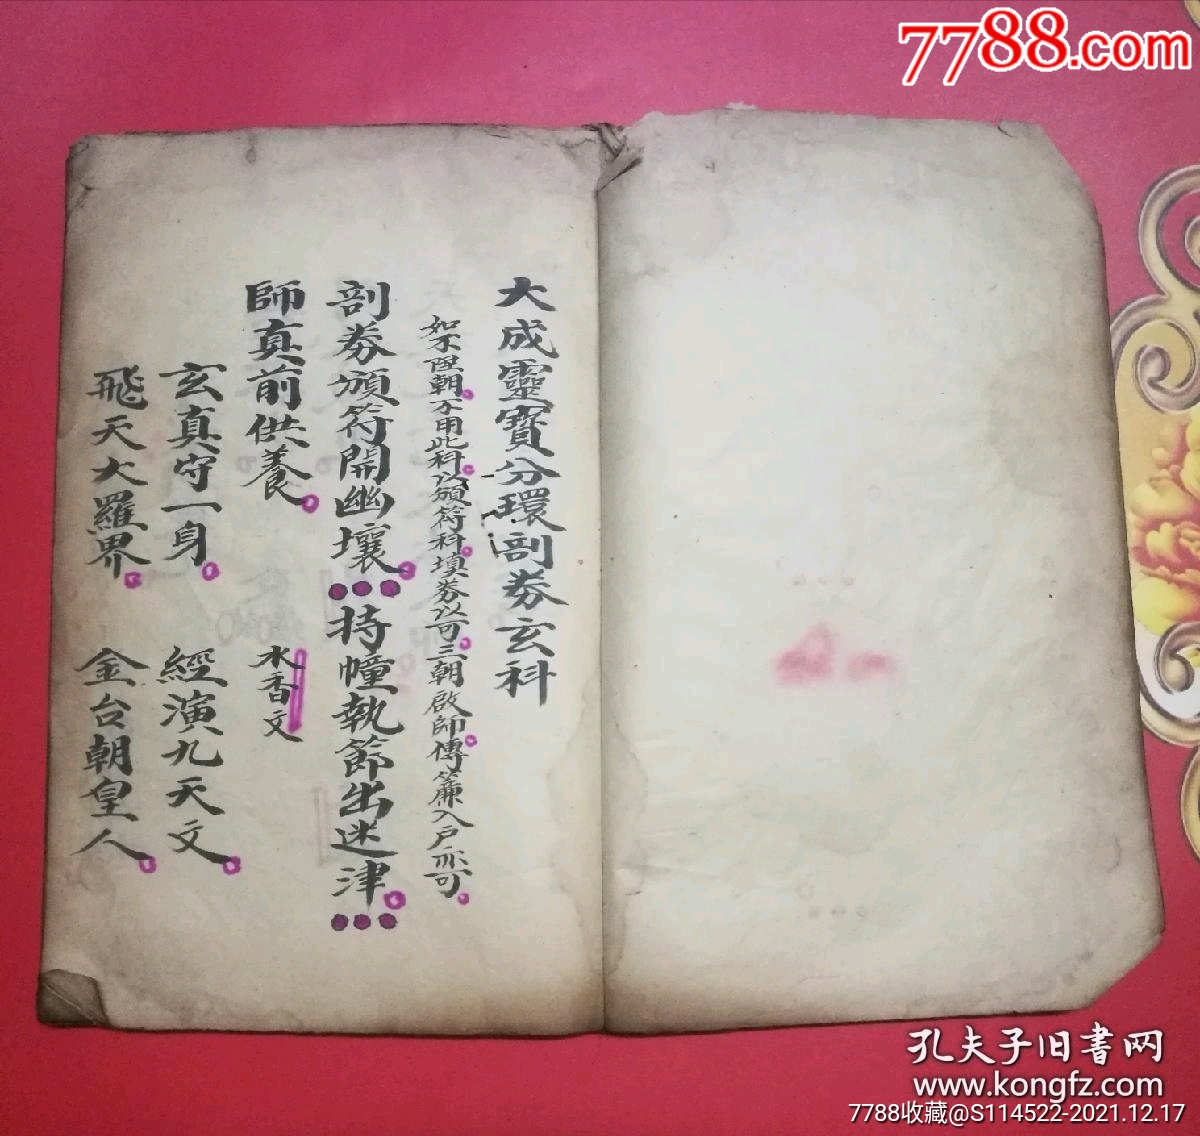 7788.com
大成靈寳分環剖券玄科
如不陞朝不用此科以頒符科填券以可三朝啟師傳簾入户亦可
剖券頒符開幽壤 持幢執節出迷津
師真前供養 水香文
玄真守一身 經演九天文
飛天大羅界 金台朝皇人
孔夫子旧書网
www.kongfz.com
7788收藏@S114522-2021.12.17